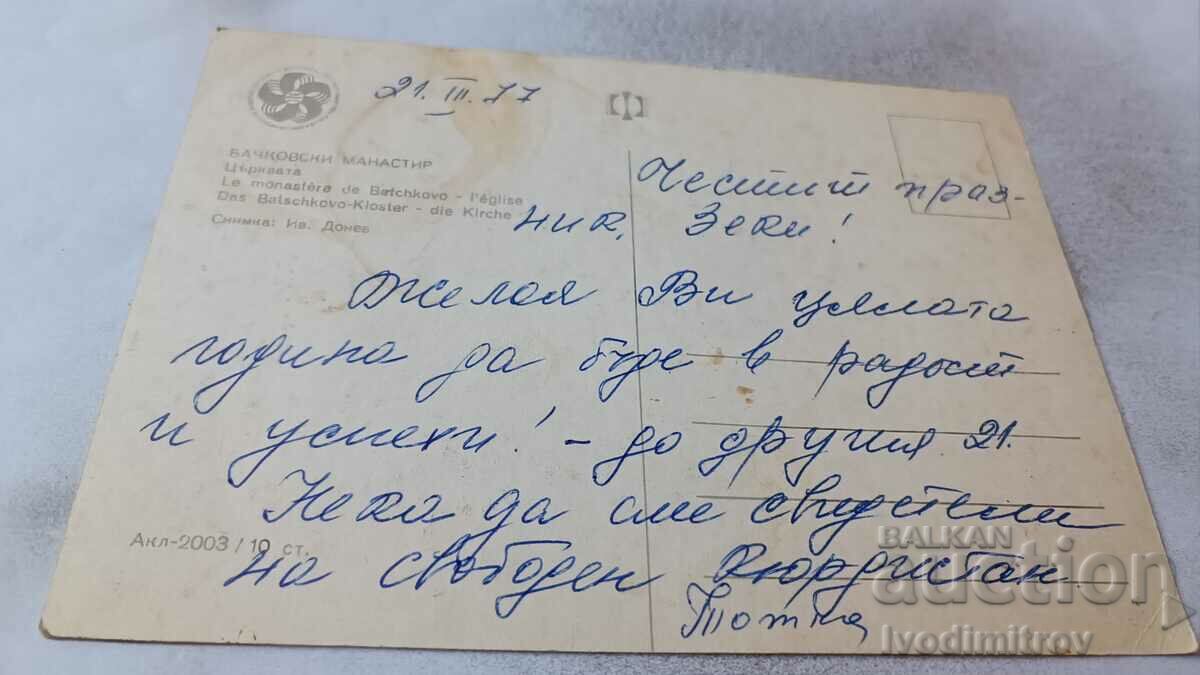 21. III. 77
БАЧКОВСКИ МАНАСТИР
Църквата
Le monastère de Batchkovo - l'église
Das Batschkovo-Kloster - die Kirche
Снимка: Ив. Донев
Честит праз-
ник, Зеки!
Желая Ви цялата
година да бъде в радост
и успехи! - до другия 21.
Нека да сме свидетели
на свободен Кюрдистан
Тотка
Акл-2003 / 10 ст.
BALKAN
auction
Ivodimitrov